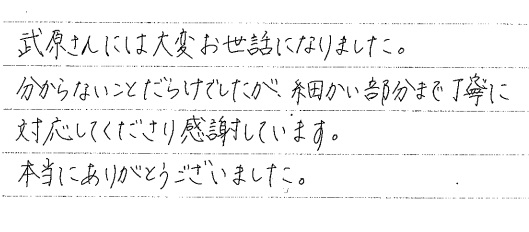 武原さんには大変お世話になりました。
分からないことだらけでしたが、細かい部分まで丁寧に
対応してくださり感謝しています。
本当にありがとうございました。